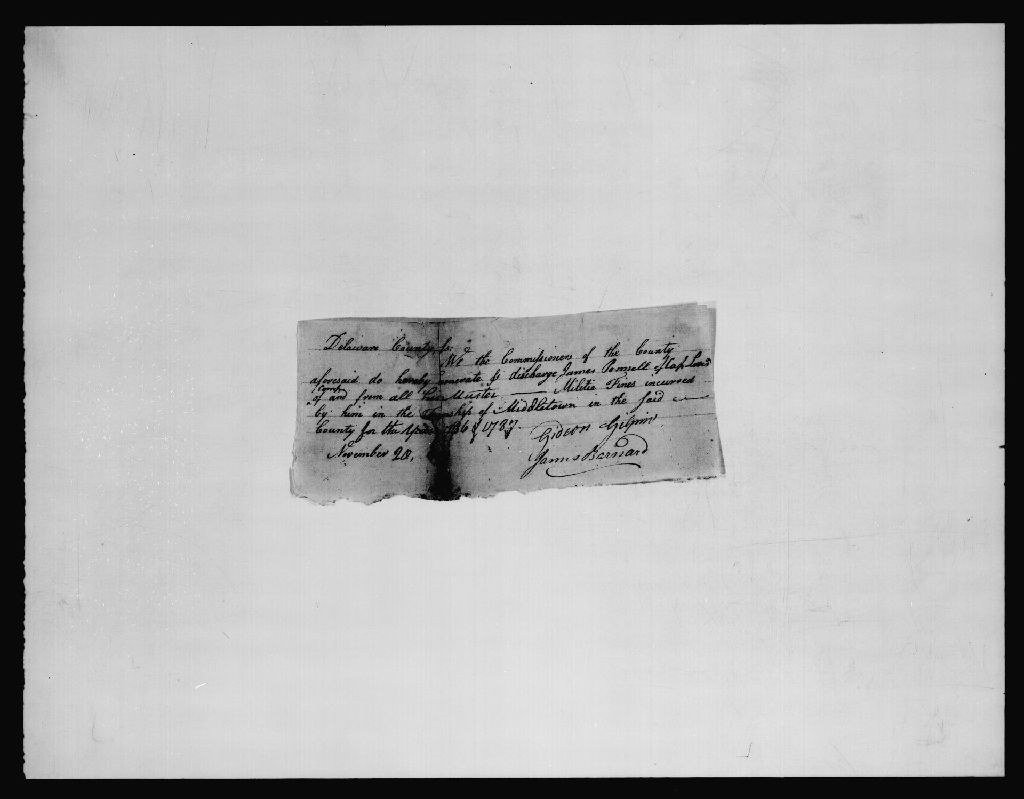 Delaware County ss. &
We the Commissioners of the County
aforesaid do hereby exonerate & discharge James Pennell
of and from all Muster — Militia Fines incurred
by him in the Township of Middletown in the said
County for the 86 & 1787
Gideon Gilpin
November 28,
James Barnard